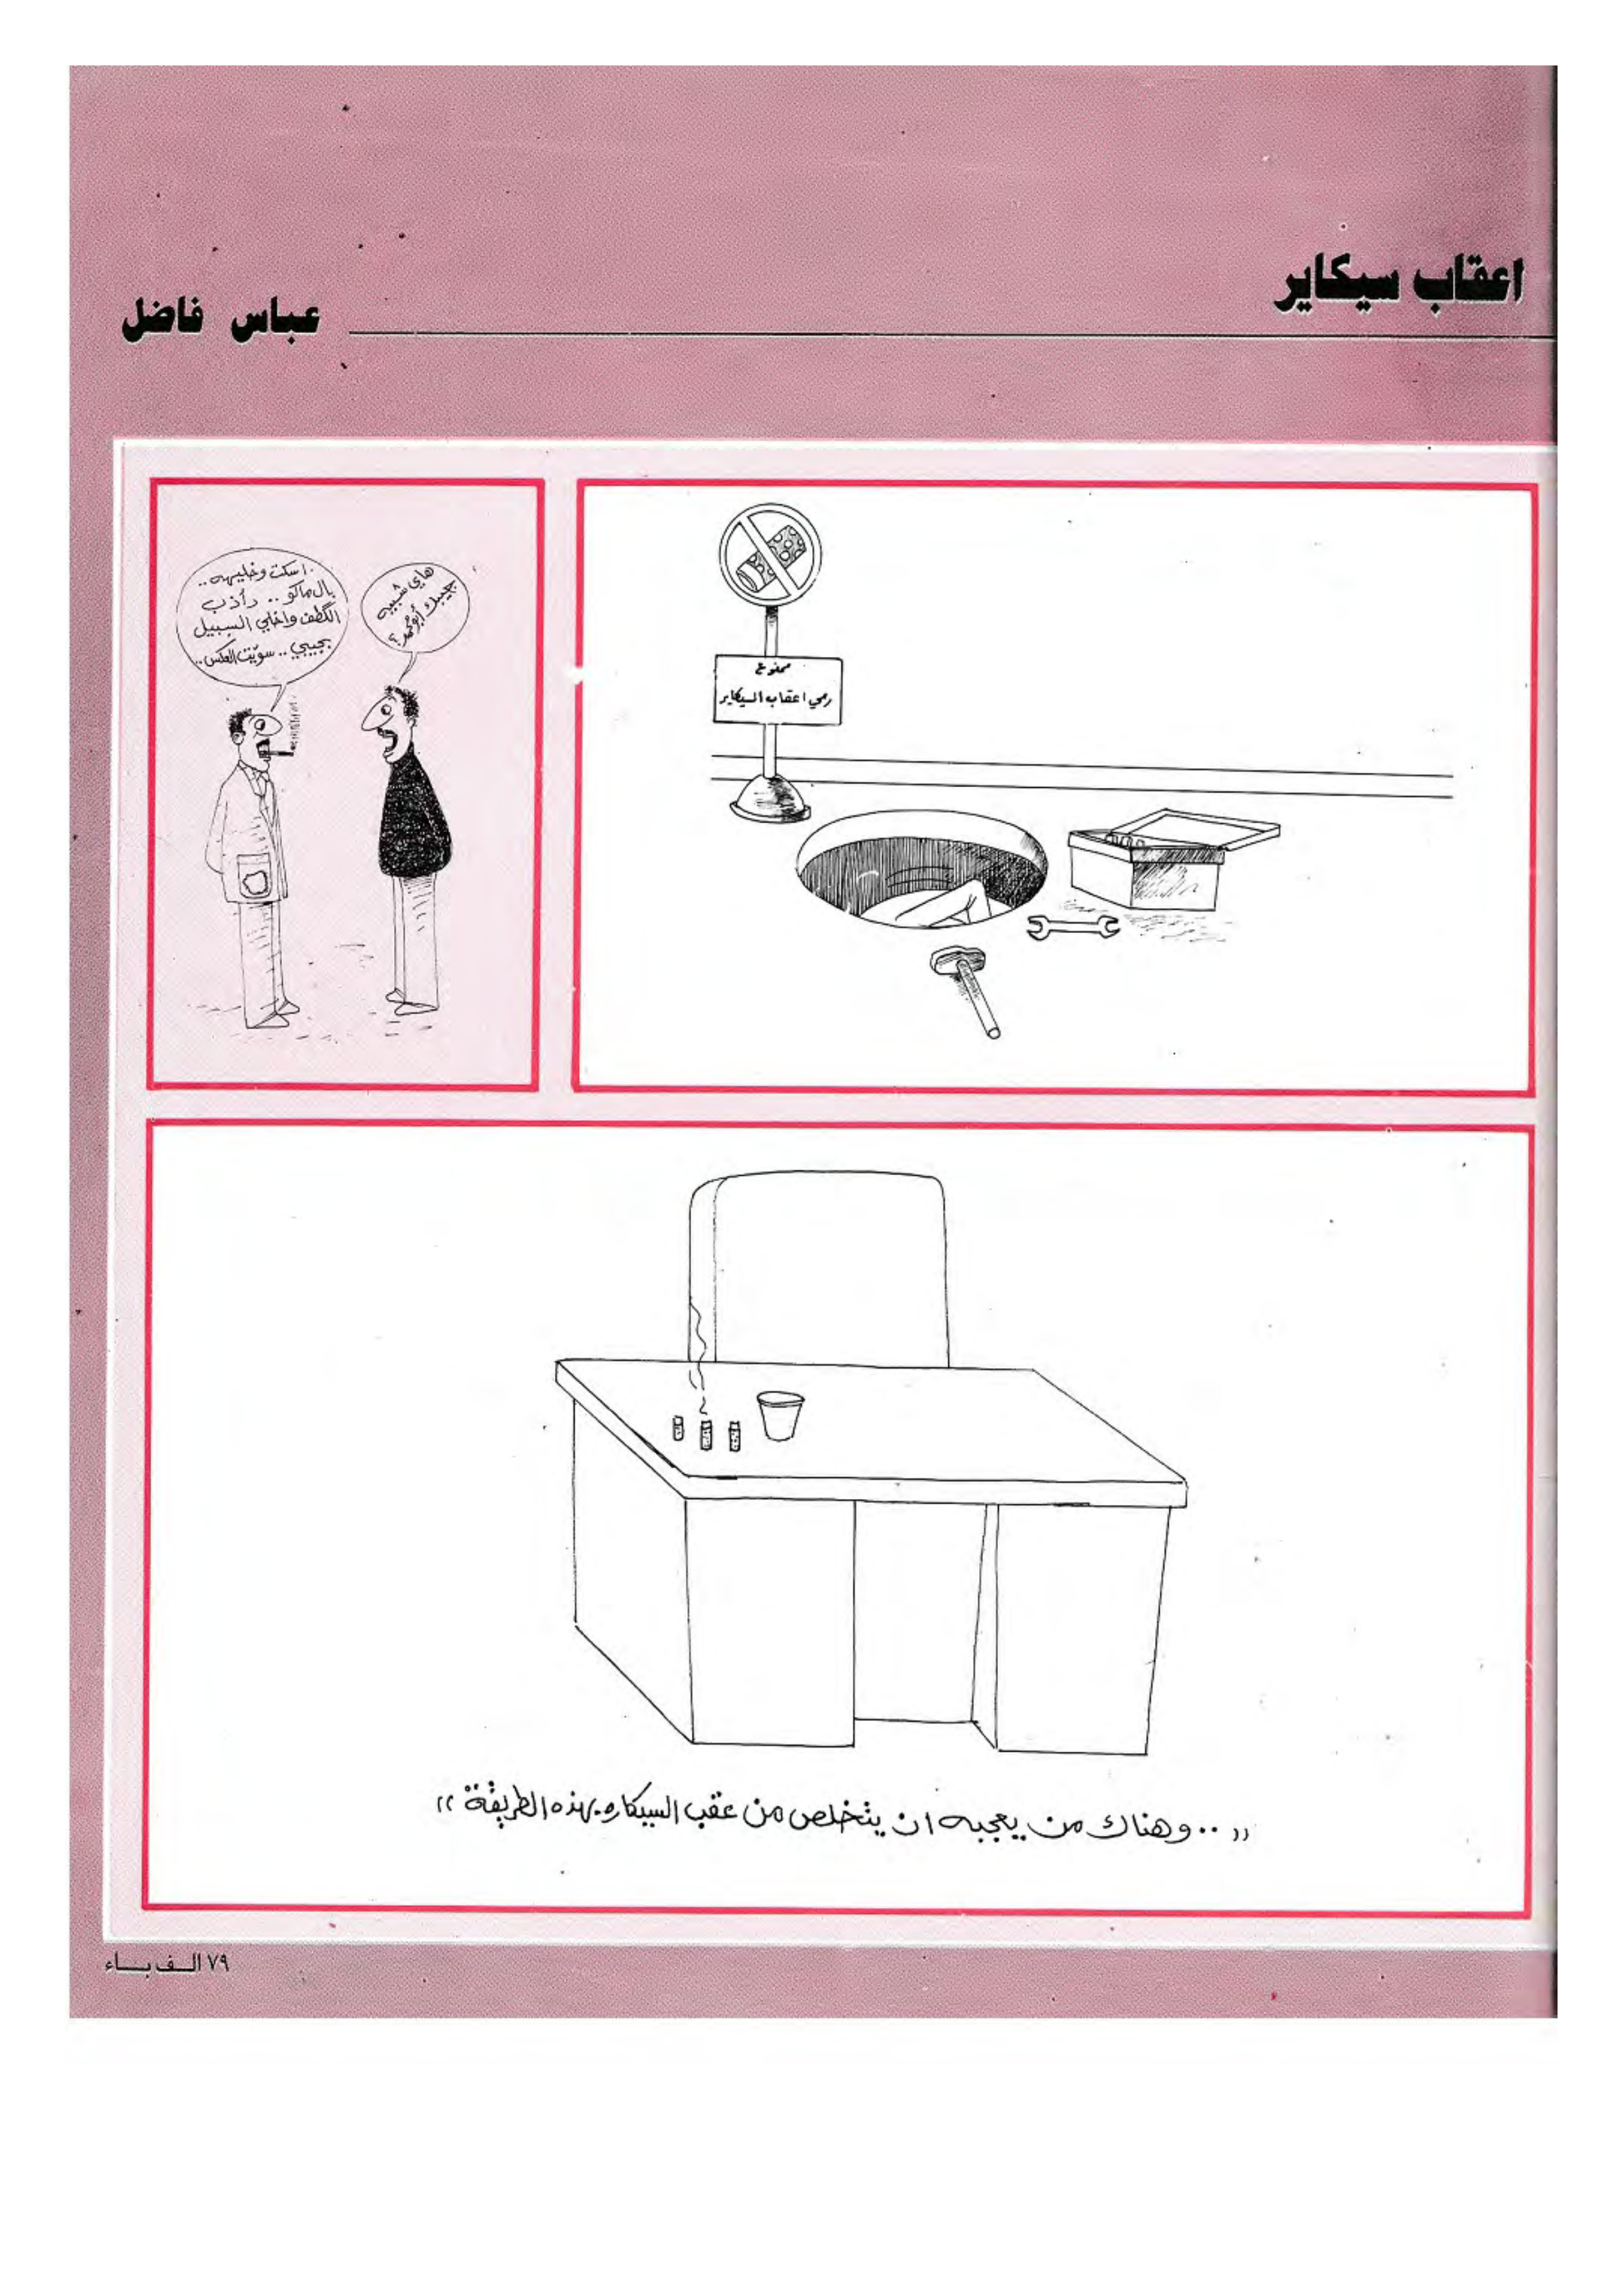 اعقاب سيكاير
عباس فاضل
ممنوع
رمي اعقاب السيكاير
هاي شبيه
جيبك أبو محمد؟
اسكت وخليهه..
بال ماكو.. دأذب
الگطف واخلي السبيل
بجيبي.. سويت العكس..
«.. وهناك من يعجبه ان يتخلص من عقب السيكاره بهذه الطريقة»
٧٩ الـف بـاء